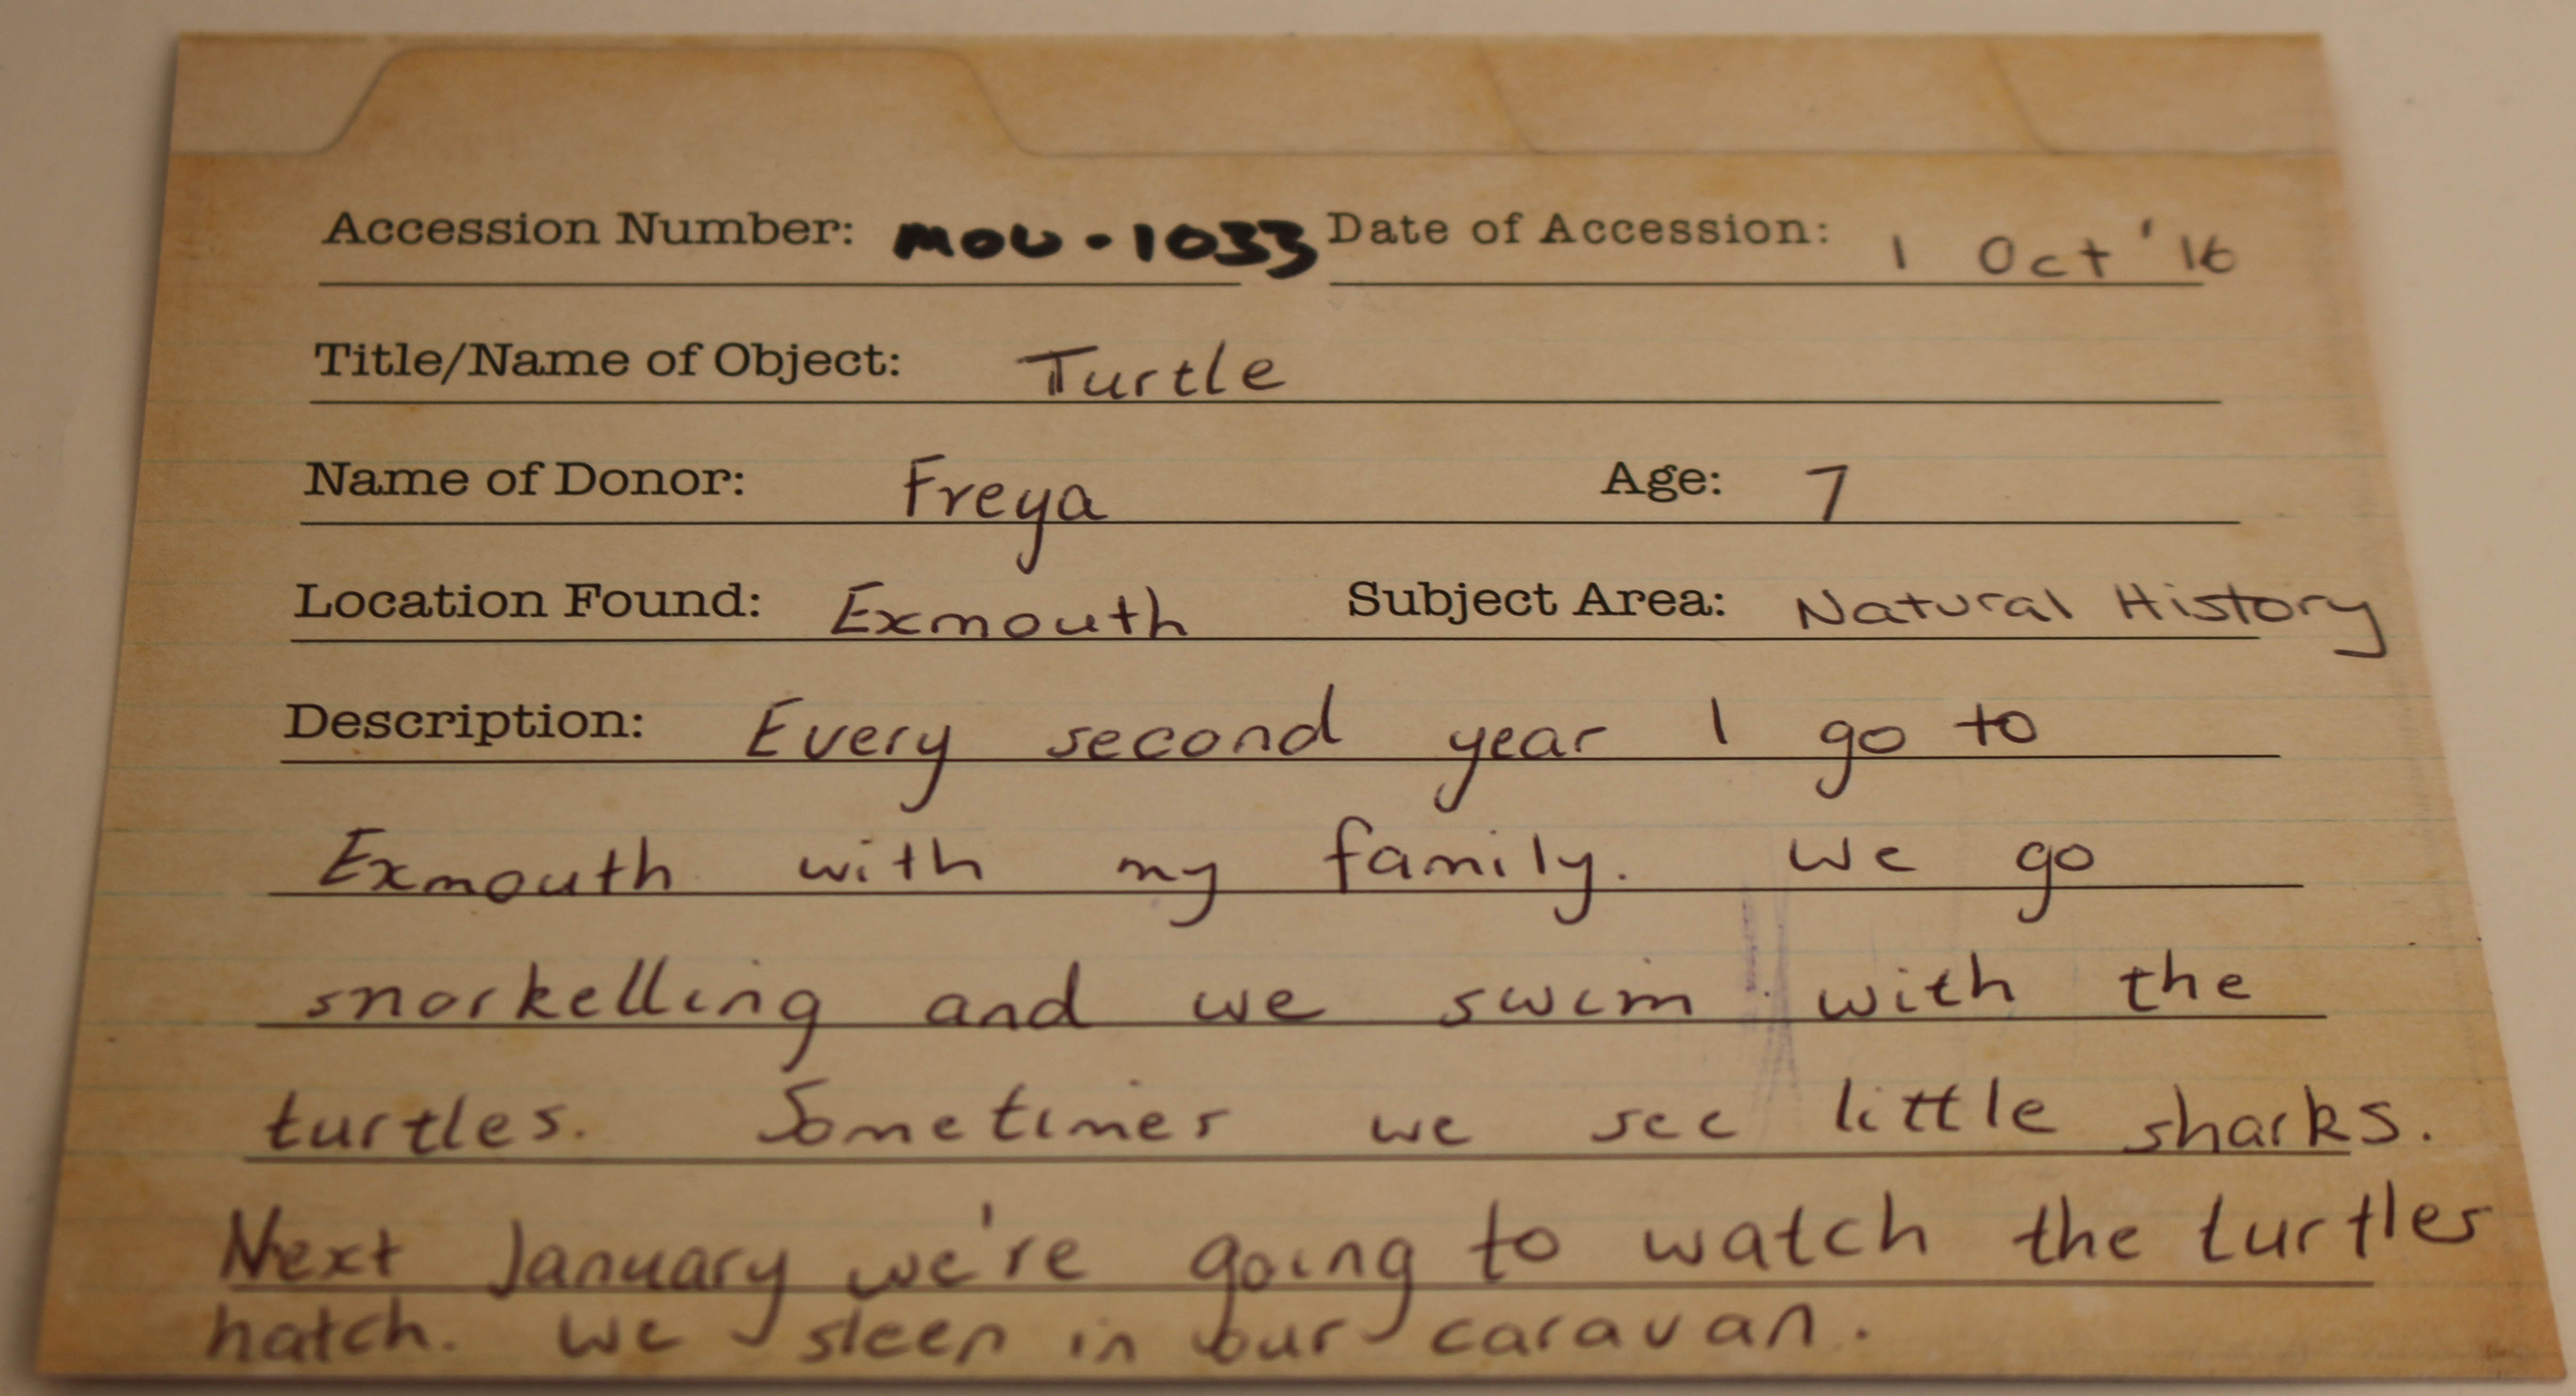 Accession Number: MOU-1033 Date of Accession: 1 Oct '16
Title/Name of Object: Turtle
Name of Donor: Freya Age: 7
Location Found: Exmouth Subject Area: Natural History
Description: Every second year I go to
Exmouth with my family. We go
snorkelling and we swim with the
turtles. Sometimes we see little sharks.
Next January we're going to watch the turtles
hatch. We sleep in our caravan.